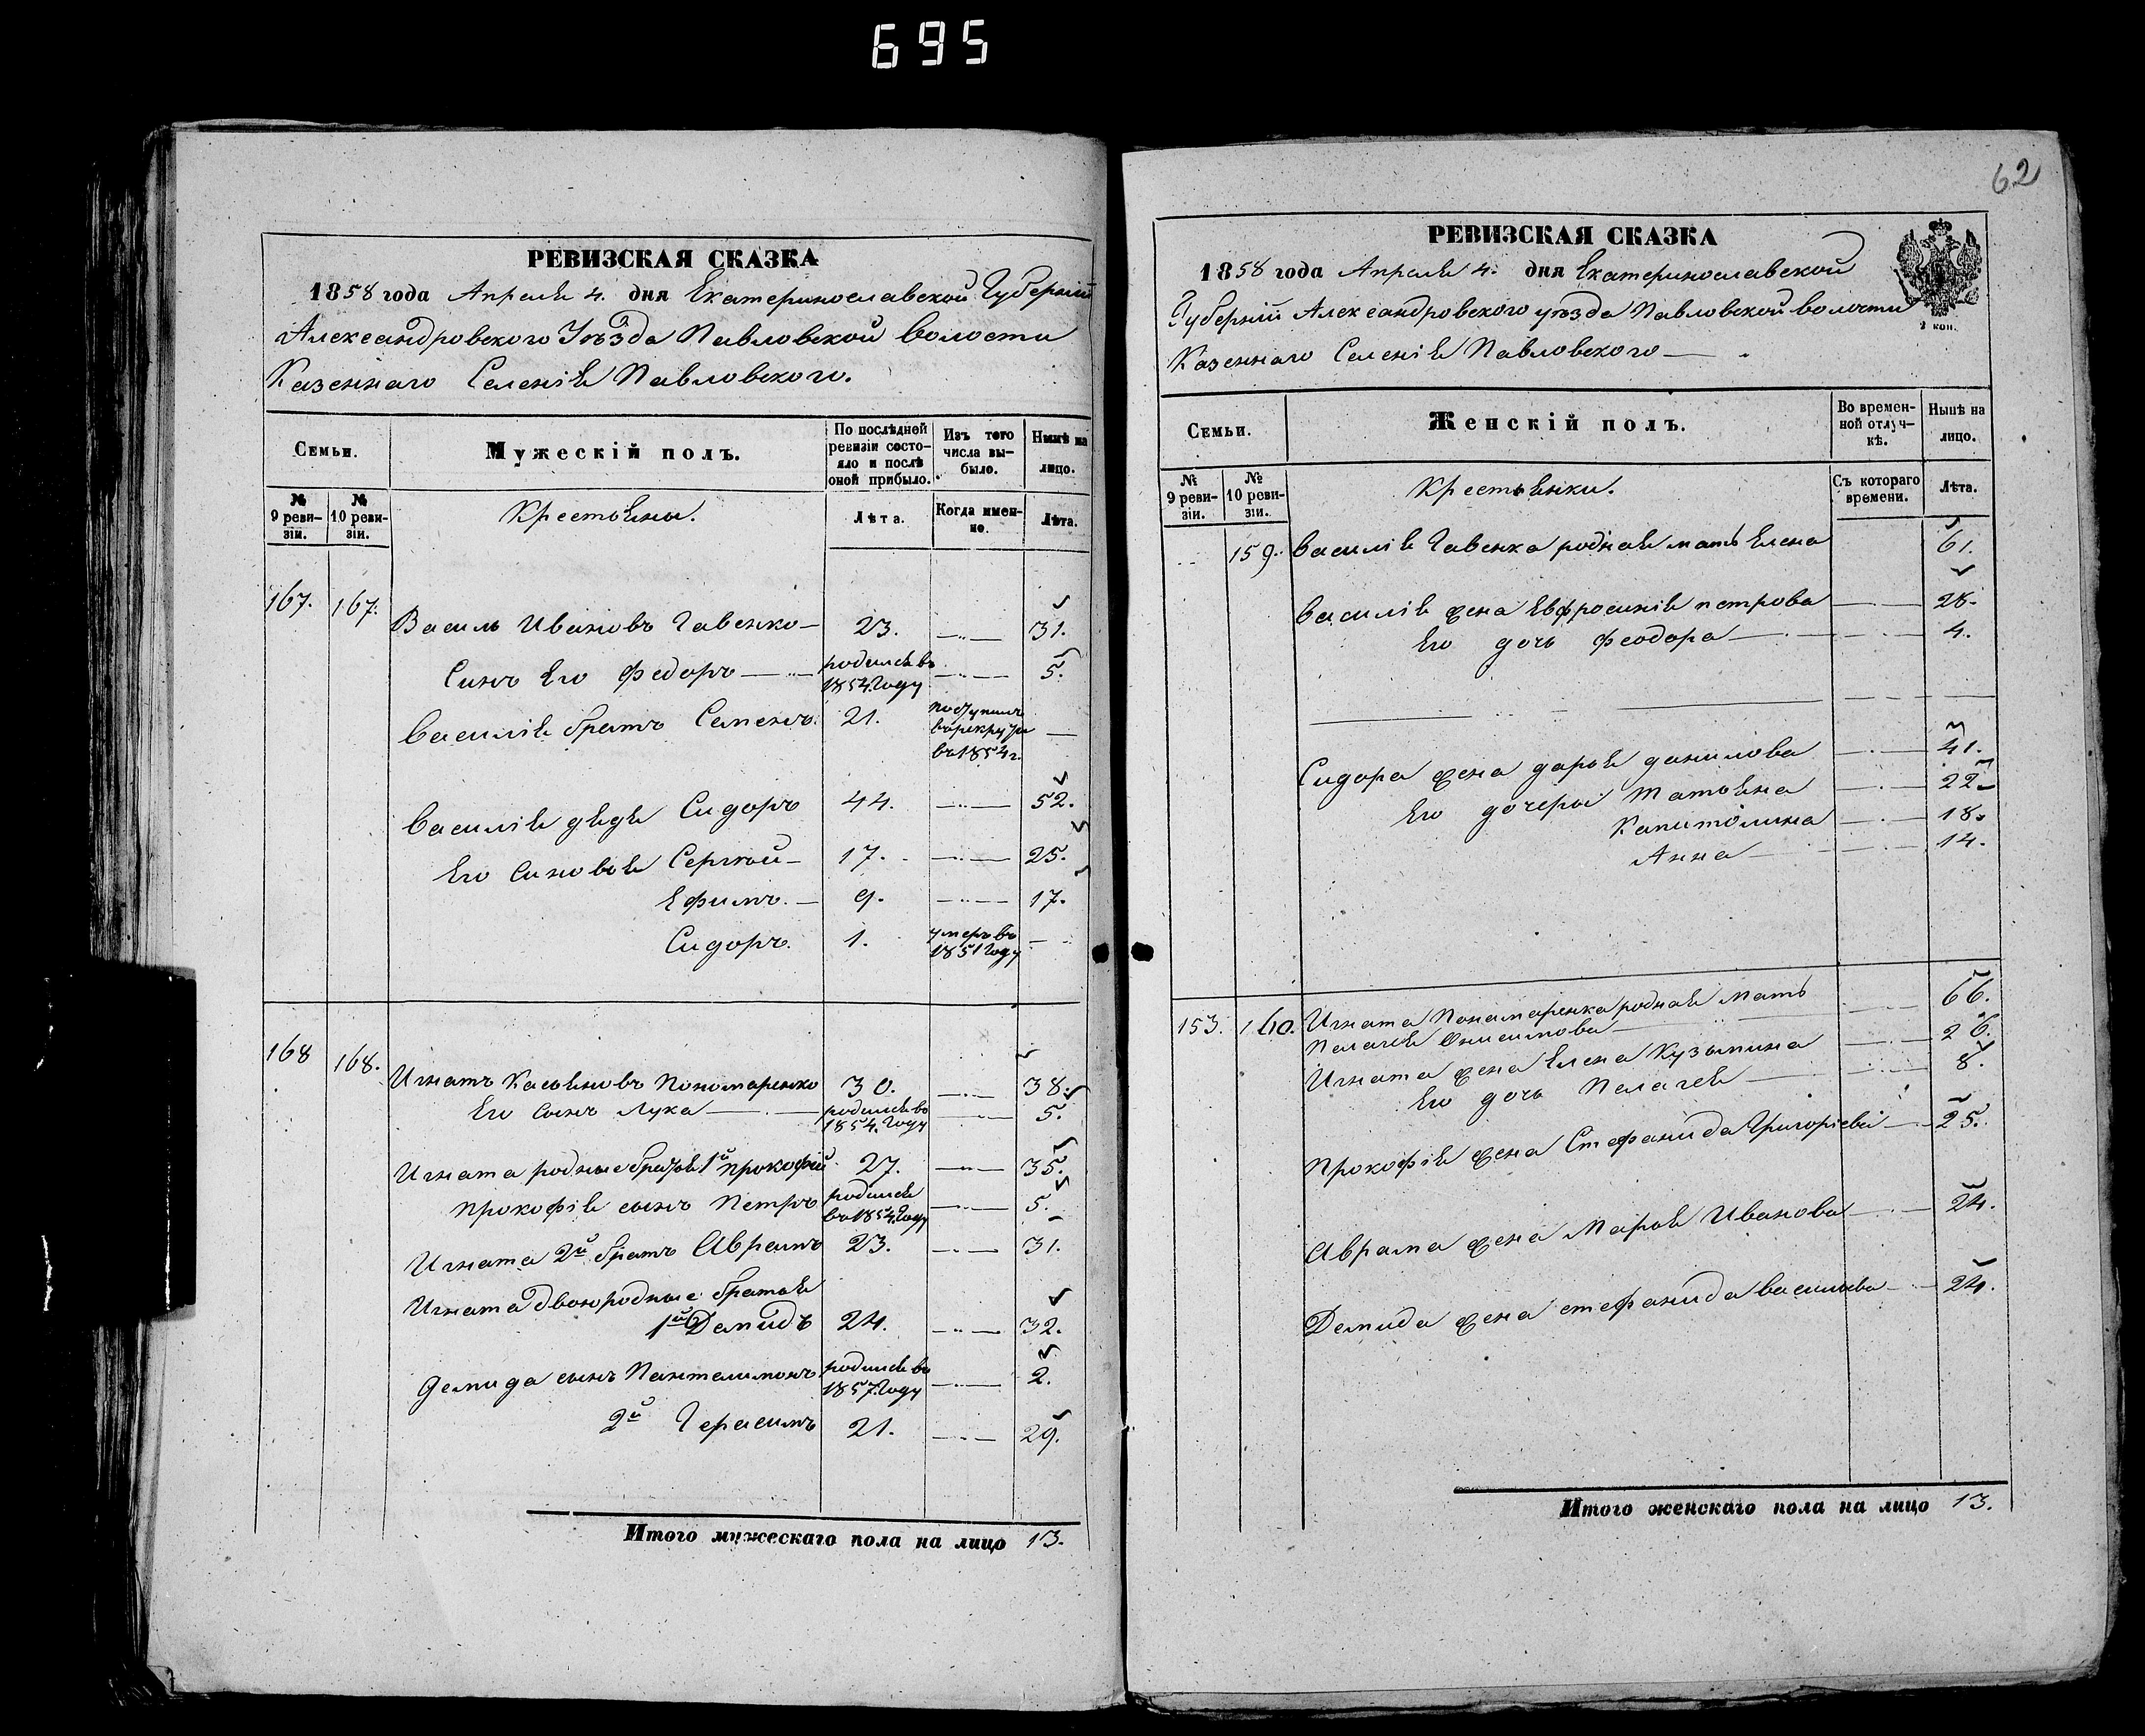 695
РЕВИЗСКАЯ СКАЗКА
1858 года Апреля 4. дня Екатеринославской Губерніи
Александровского Уѣзда Павловской Волости
Казеннаго Селенія Павловского.
Семьи.
Мужескій полъ.
По послѣдней ревизіи состояло и послѣ оной прибыло.
Изъ того числа выбыло.
Нынѣ на лицо.
№ 9 ревизіи.
№ 10 ревизіи.
Крестьяны.
Лѣта.
Когда именно.
Лѣта.
167. 167. Василь Ивановъ Гавенко 23. 31.
Синъ Его Федоръ родился въ 1854. Году 5.
Василія братъ Семенъ. 21. поступилъ в рекруты въ 1854 г.
Василія дядя Сидоръ 44. 52.
Его Синовья Сергюй 17. 25.
Ефимъ. 9. 17.
Сидоръ. 1. умеръ въ 1851 Году
168 168. Игнатъ Касьяновъ Пономаренко 30. 38.
Его сынъ Лука родился во 1854. Году 5.
Игната родные братья 1й прокофій 27. 35.
прокофія сынъ Петръ родился въ 1854. Году 5.
Игната 2й братъ Аврамъ 23. 31.
Игната двоюродные братья
1й Демидъ 24. 32.
Демида сынъ Пантелимонъ родился во 1857. Году 2.
2й Герасимъ 21. 29.
Итого мужескаго пола на лицо 13.
62
РЕВИЗСКАЯ СКАЗКА
1858 года Апреля 4. дня Екатеринославской
Губерніи Александровского уѣзда Павловской волости
Казеннаго Селенія Павловского
Семьи.
Женскій полъ.
Во временной отлучкѣ.
Нынѣ на лицо.
№ 9 ревизіи.
№ 10 ревизіи.
Крестьянки.
Съ котораго времени.
Лѣта.
159. Василія Гавенка родная мать Елена 61.
Василія жена Евфросинія петрова 28.
Его дочь феодора 4.
Сидора жена дарья данилова 41.
Его дочерьи Татьяна 22
Капитолина 18.
Анна 14.
153. 160. Игната Понамаренка родная мать 66.
Пелагея Онисимова
Игната жена Елена Кузьмина 26.
Его дочь Пелагея 8.
прокофія жена Стефанида Григоріева 25.
Аврама жена Марья Иванова 24.
Демида жена стефанида васильева 24.
Итого женскаго пола на лицо 13.